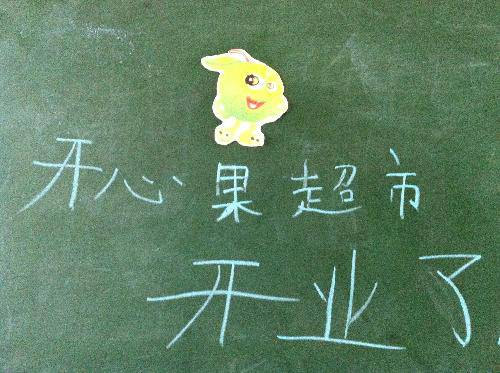 开心果超市
开业了